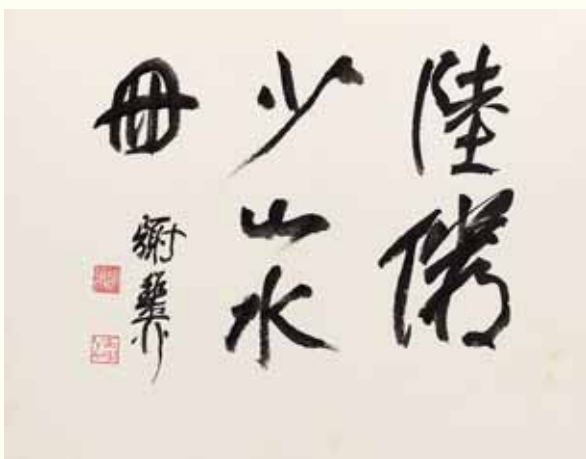 陸儼
少山水
冊
謝稚柳